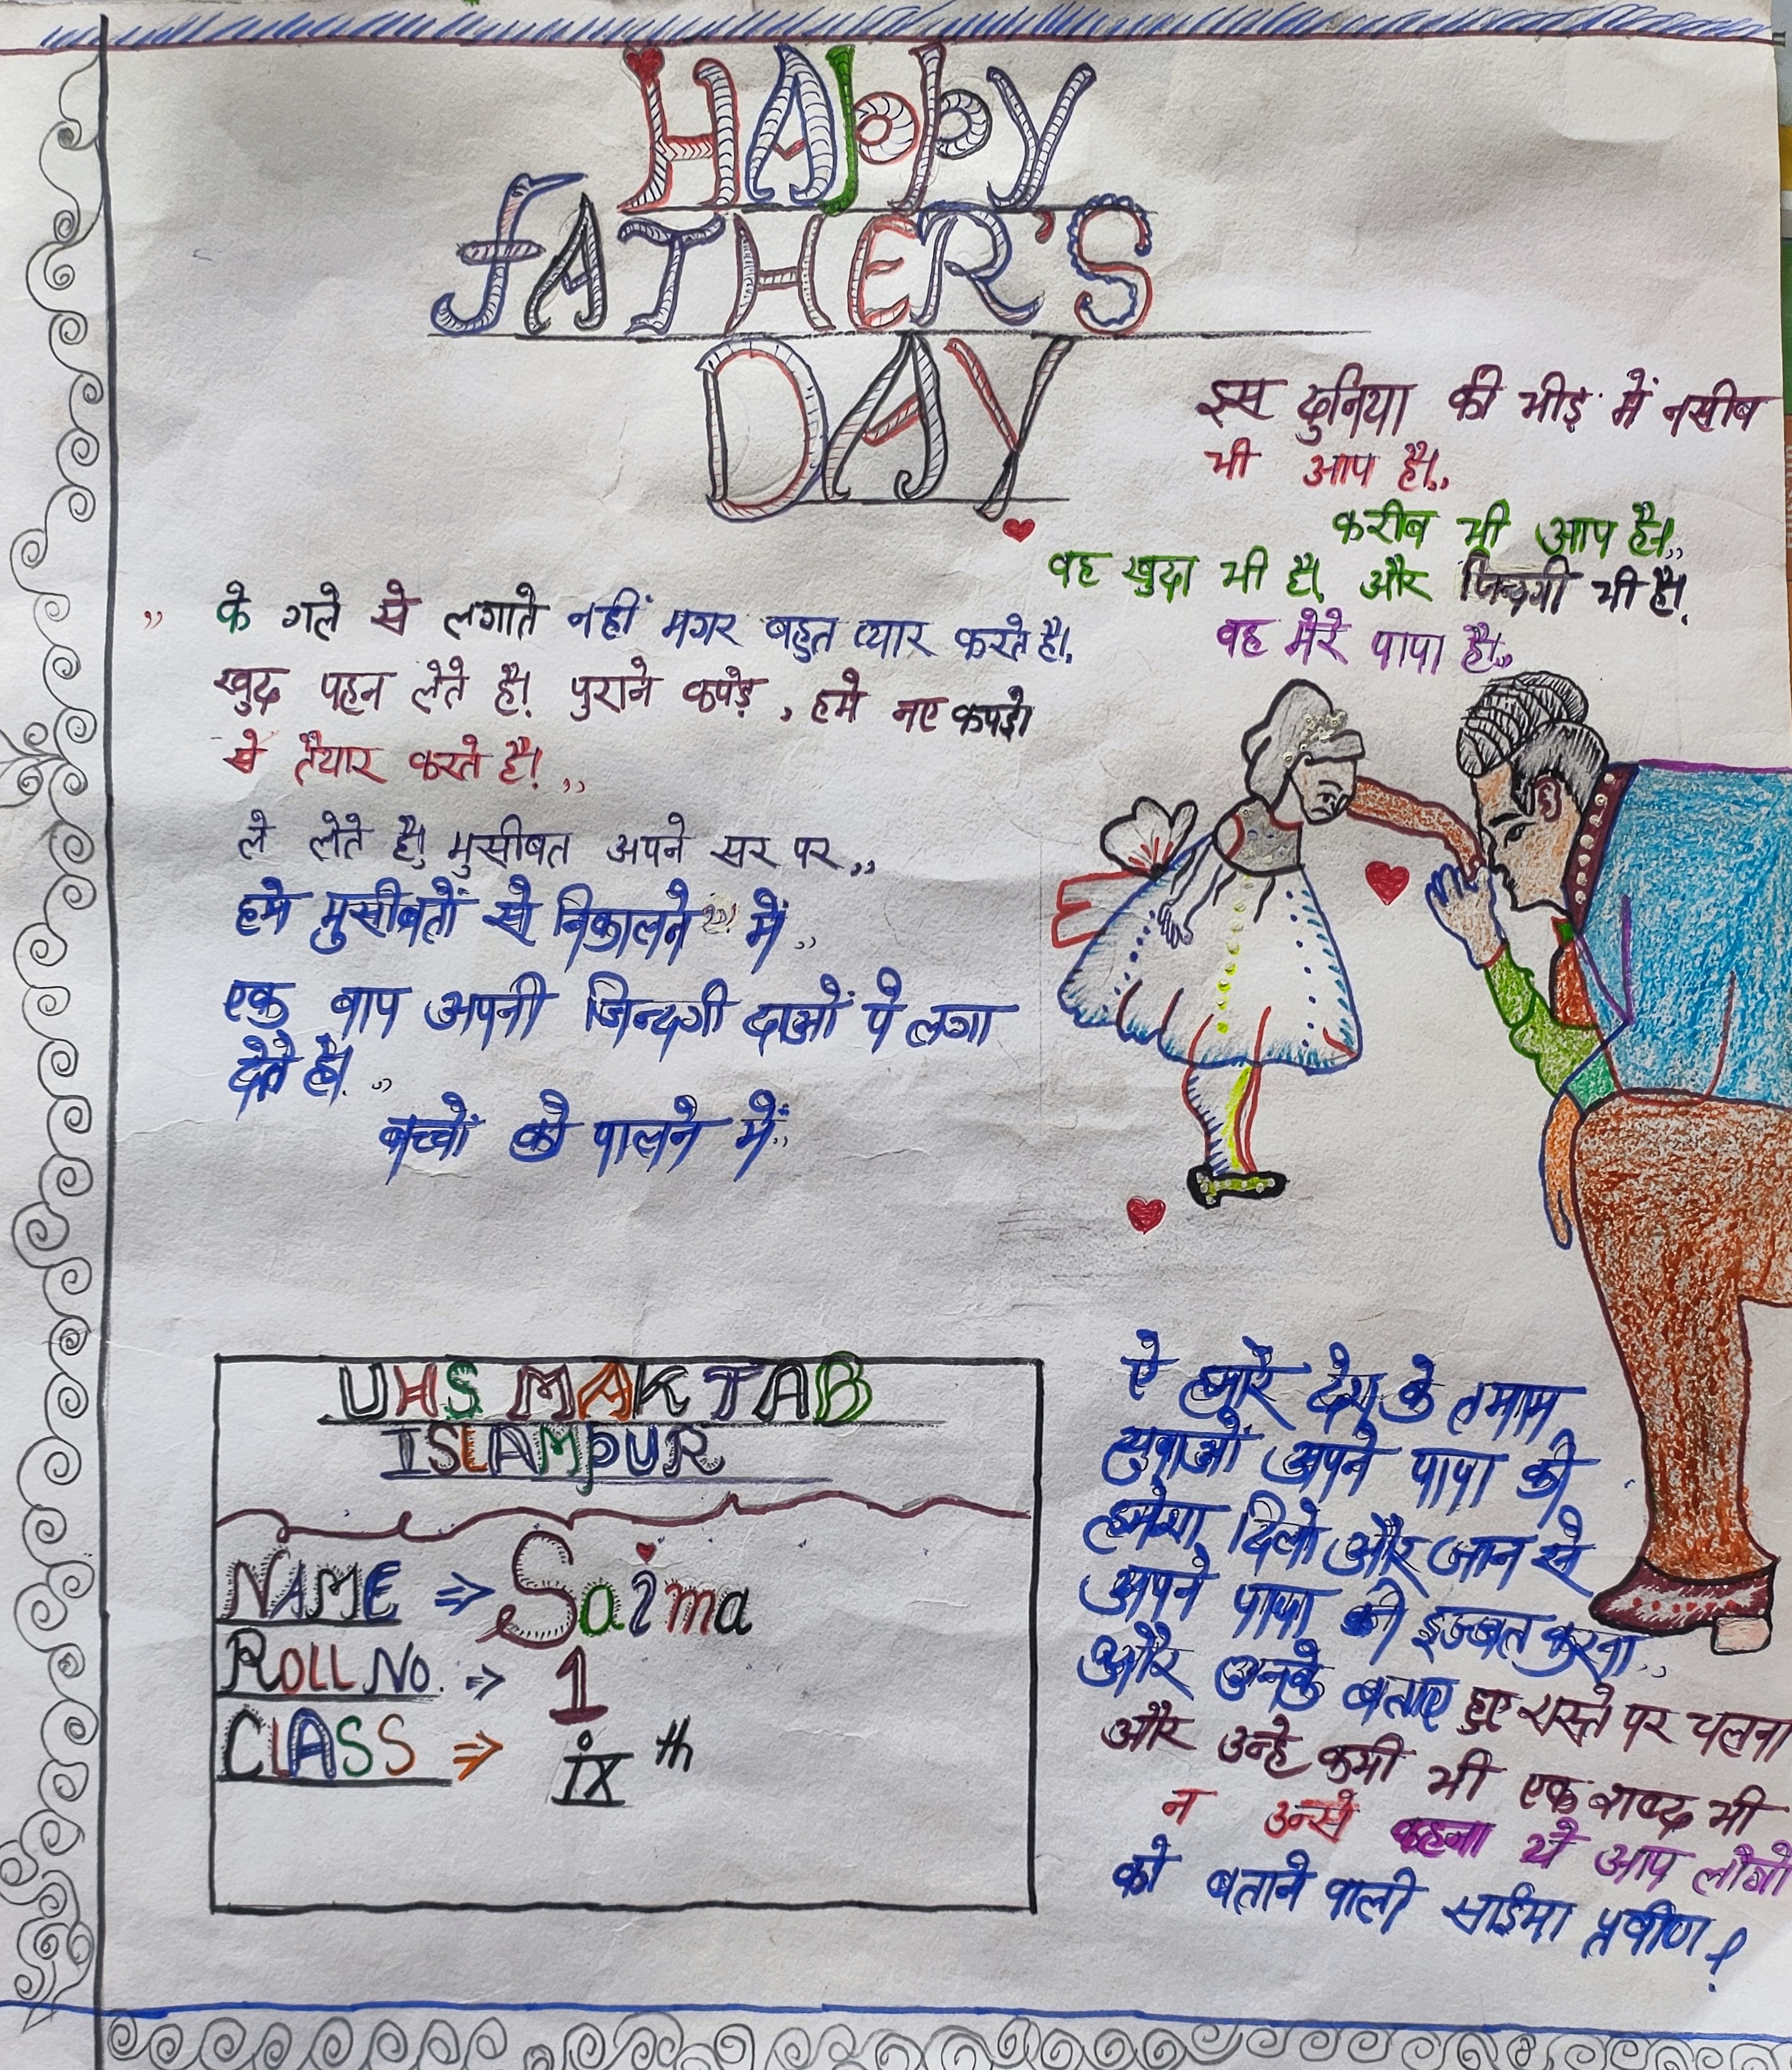 HAppy
fATHER'S
DAY
इस दुनिया की भीड़ में नसीब
भी आप है।,,
करीब भी आप है।,,
वह खुदा भी है। और जिन्दगी भी है।
वह मेरे पापा है।,,
,, के गले से लगाते नहीं मगर बहुत प्यार करते है।
खुद पहन लेते है। पुराने कपड़े, हमे नए कपड़ो
से तैयार करते है। ,,
ले लेते है। मुसीबत अपने सर पर,,
हमे मुसीबतों से निकालने में,,
एक बाप अपनी जिन्दगी दाओं पे लगा
देते है। ,,
बच्चों को पालने में,,
UHS MAKTAB
ISLAMpUR
NAME ⇒ Saima
ROLL No. ⇒ 1
CLASS ⇒ ix th
ऐ हमारे देश के तमाम
युवाओं अपने पापा की
हमेशा दिलो और जान से
अपने पापा की इज्जत करना,,
और उनके बताए हुए रास्ते पर चलना
और उन्हे कभी भी एक शब्द भी
न उन्से कहना ये आप लोगो
को बताने वाली साईमा प्रवीण!